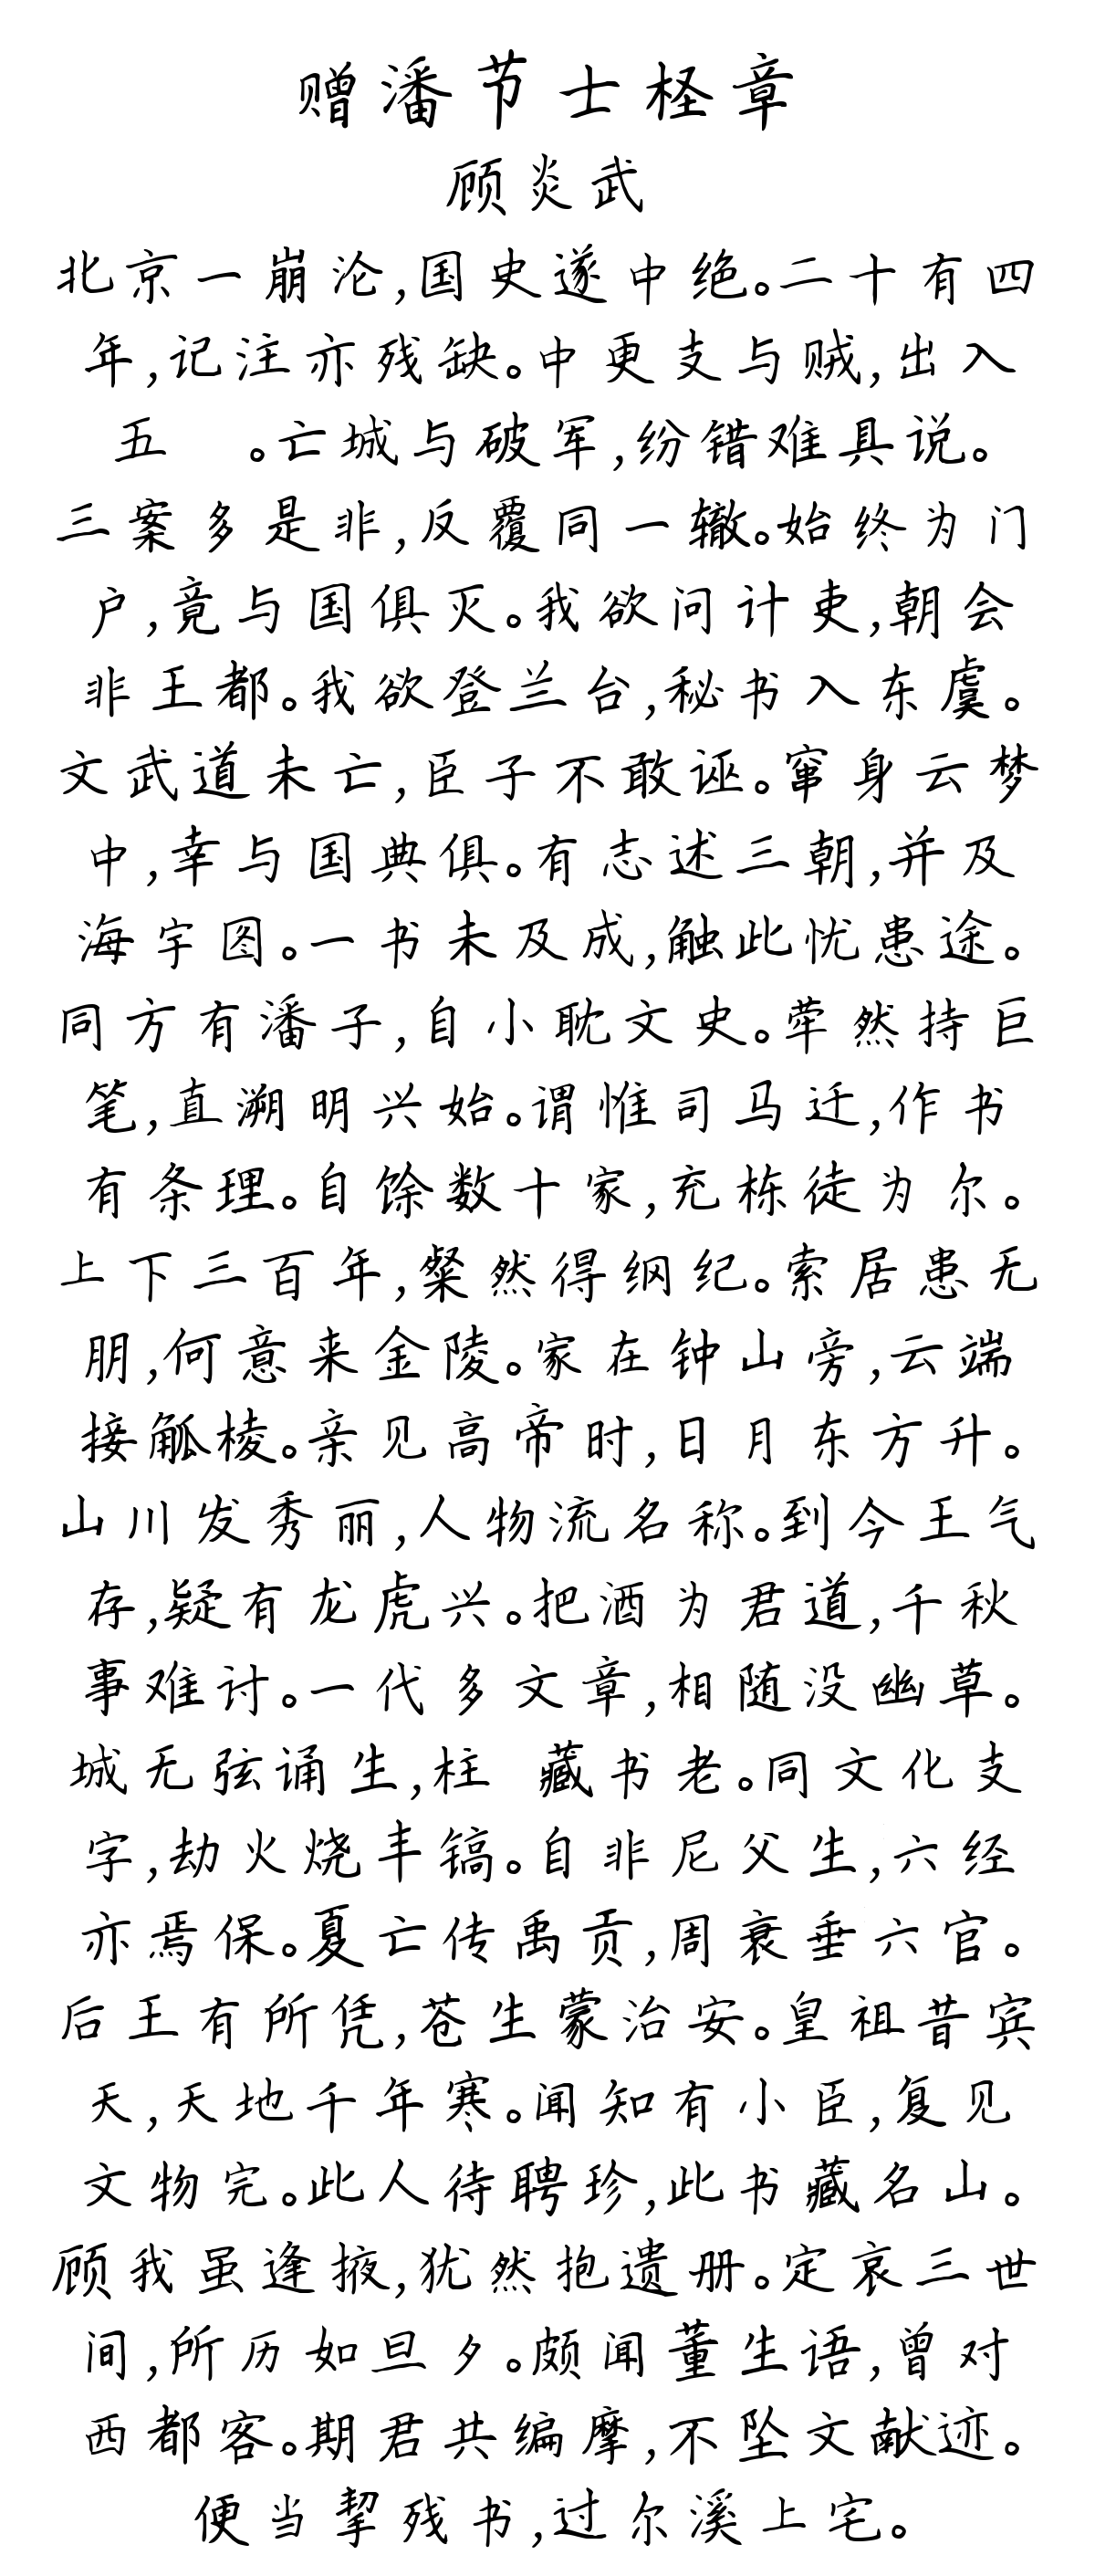 赠潘节士柽章
顾炎武
北京一崩沦,国史遂中绝。二十有四
年,记注亦残缺。中更支与贼,出入
五 。亡城与破军,纷错难具说。
三案多是非,反覆同一辙。始终为门
户,竟与国俱灭。我欲问计吏,朝会
非王都。我欲登兰台,秘书入东虞。
文武道未亡,臣子不敢诬。窜身云梦
中,幸与国典俱。有志述三朝,并及
海宇图。一书未及成,触此忧患途。
同方有潘子,自小耽文史。荦然持巨
笔,直溯明兴始。谓惟司马迁,作书
有条理。自馀数十家,充栋徒为尔。
上下三百年,粲然得纲纪。索居患无
朋,何意来金陵。家在钟山旁,云端
接觚棱。亲见高帝时,日月东方升。
山川发秀丽,人物流名称。到今王气
存,疑有龙虎兴。把酒为君道,千秋
事难讨。一代多文章,相随没幽草。
城无弦诵生,柱 藏书老。同文化支
字,劫火烧丰镐。自非尼父生,六经
亦焉保。夏亡传禹贡,周衰垂六官。
后王有所凭,苍生蒙治安。皇祖昔宾
天,天地千年寒。闻知有小臣,复见
文物完。此人待聘珍,此书藏名山。
顾我虽逢掖,犹然抱遗册。定哀三世
间,所历如旦夕。颇闻董生语,曾对
西都客。期君共编摩,不坠文献迹。
便当挈残书,过尔溪上宅。